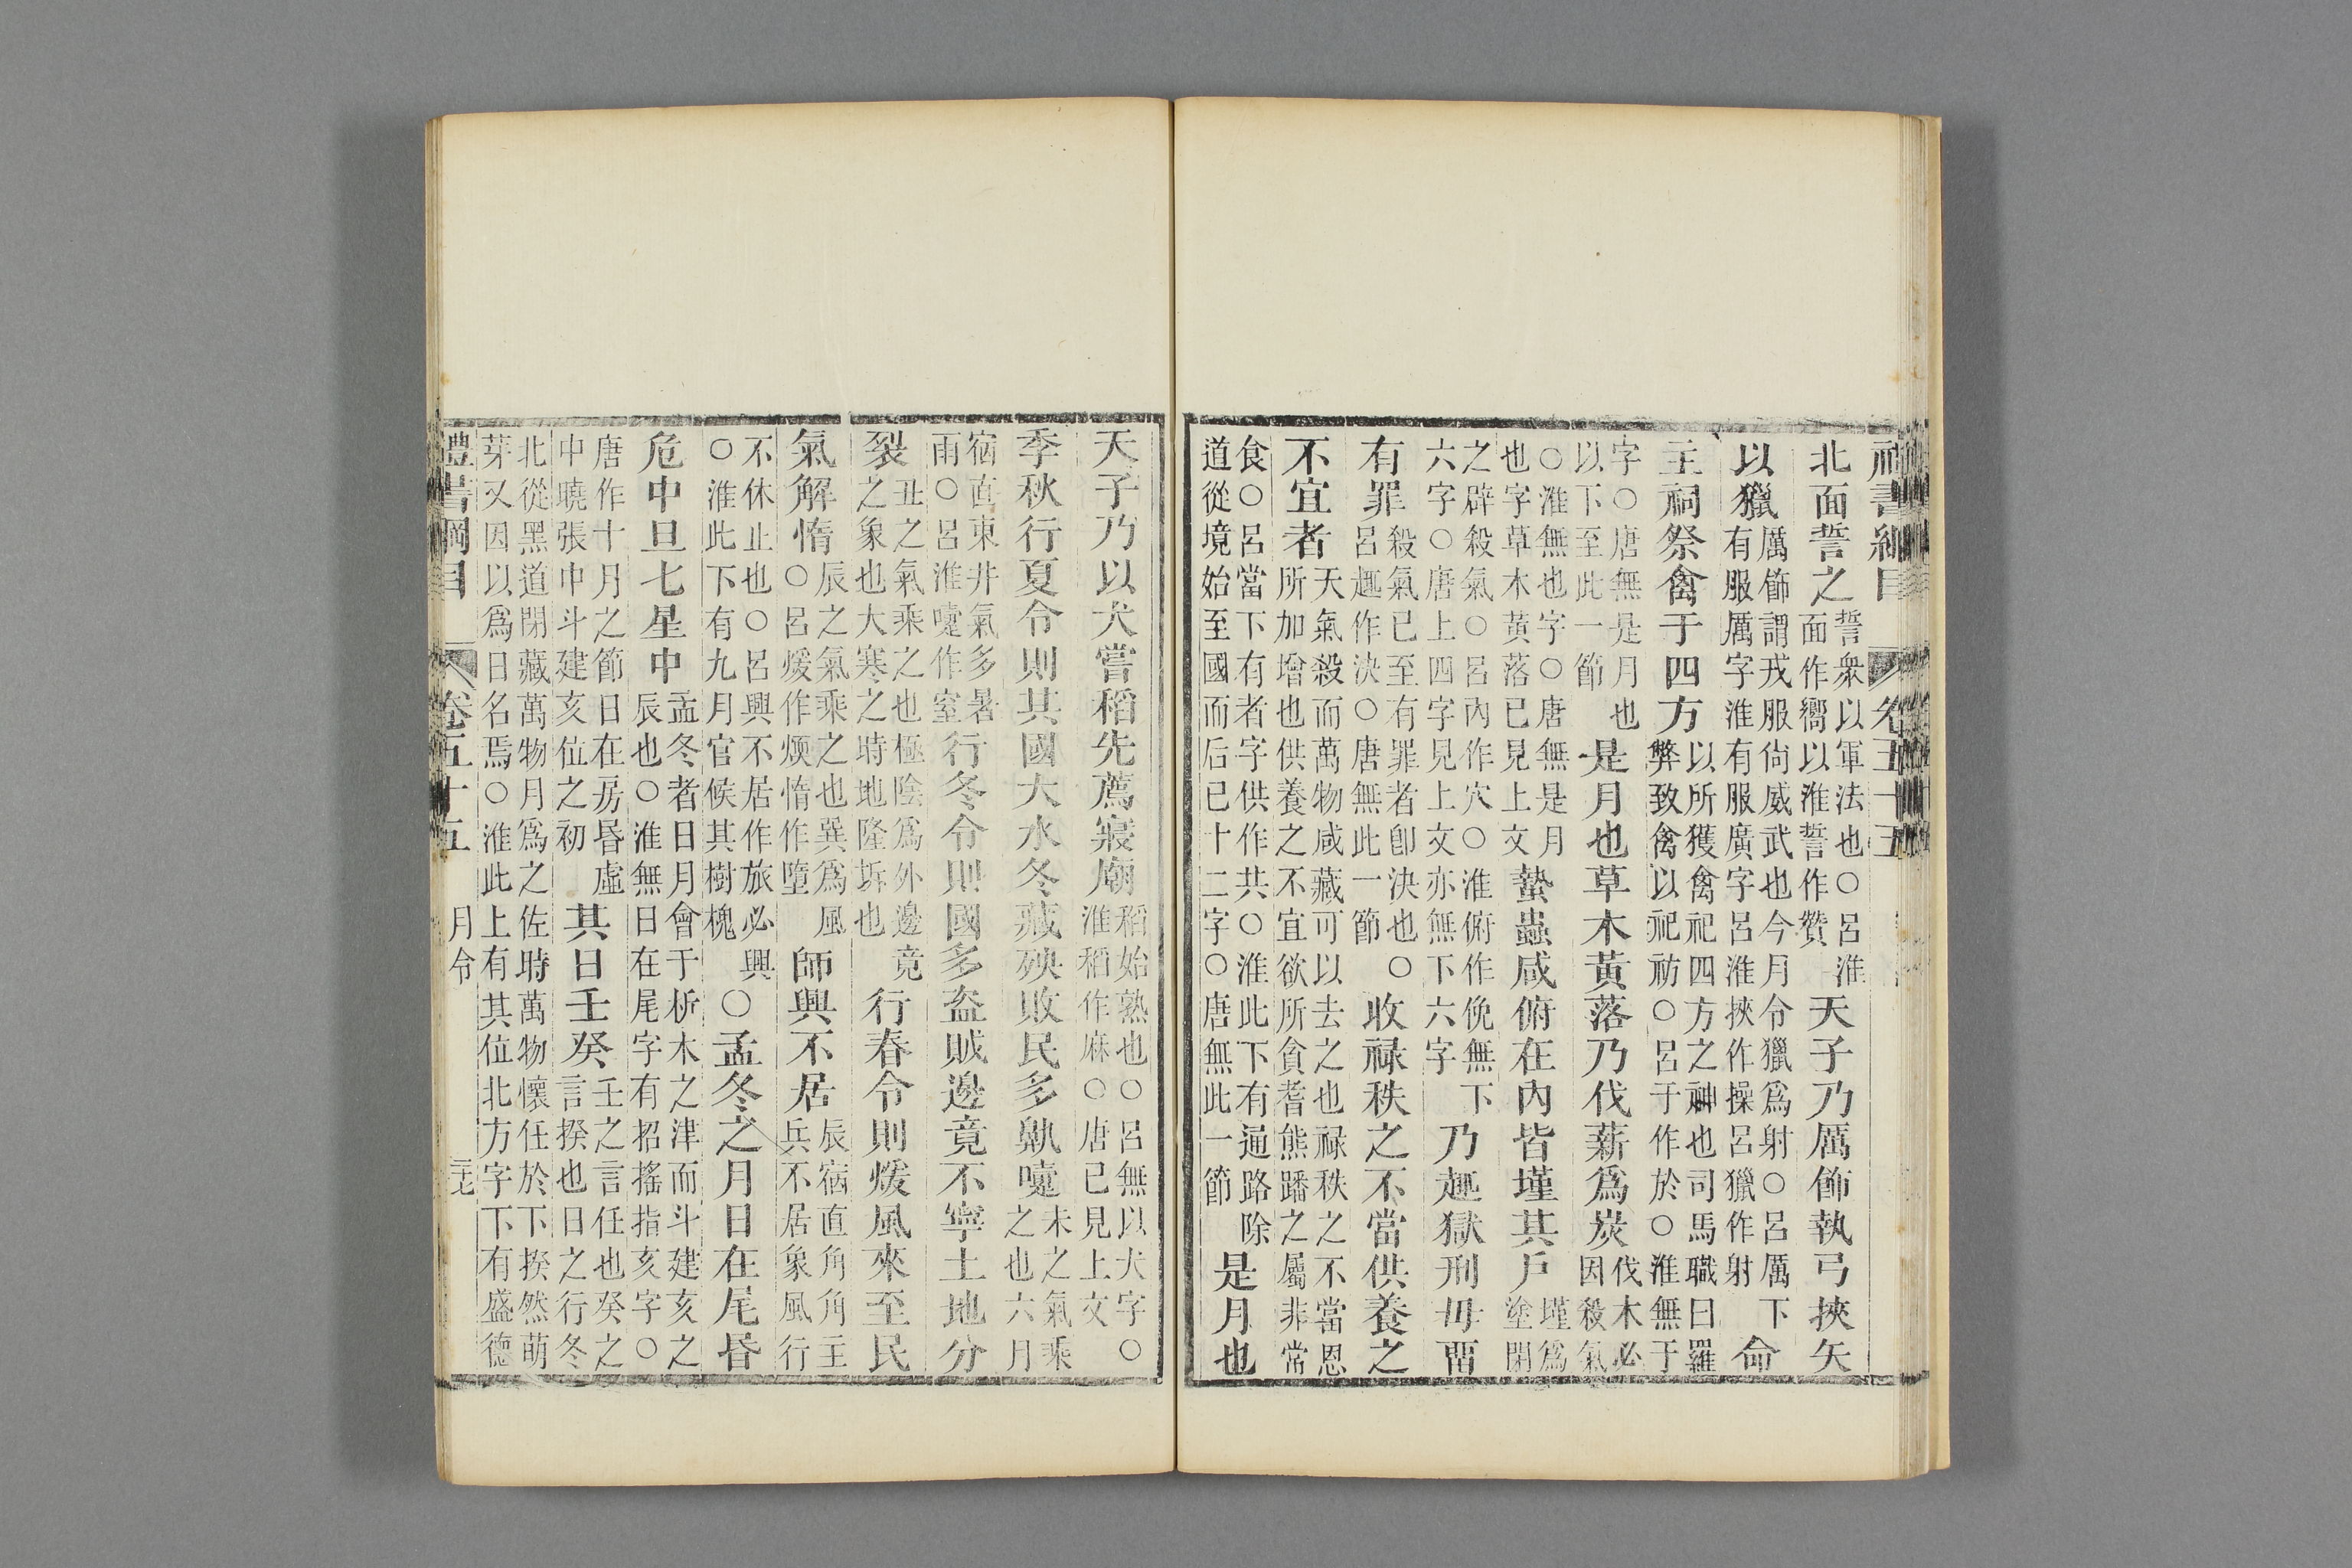 禮書綱目 卷五十五
北面誓之誓衆以軍法也○呂淮面作嚮以淮誓作贊天子乃厲飾執弓挾矢
以獵厲飾謂戎服尙威武也今月令獵爲射○呂厲下有服厲字淮有服廣字呂淮挾作操呂獵作射命
主祠祭禽于四方以所獲禽祀四方之神也司馬職曰羅弊致禽以祀祊○呂于作於○淮無于
字○唐無是月也以下至此一節是月也草木黃落乃伐薪爲炭伐木必因殺氣
○淮無也字○唐無是月也字草木黃落已見上文蟄蟲咸俯在內皆墐其戶墐爲塗閉
之辟殺氣○呂內作穴○淮俯作俛無下六字○唐上四字見上文亦無下六字乃趣獄刑毋畱
有罪殺氣已至有罪者卽決也○呂趣作決○唐無此一節收祿秩之不當供養之
不宜者天氣殺而萬物咸藏可以去之也祿秩之不當恩所加增也供養之不宜欲所貪耆熊蹯之屬非常
食○呂當下有者字供作共○淮此下有通路除道從境始至國而后已十二字○唐無此一節是月也
天子乃以犬嘗稻先薦寢廟稻始熟也○呂無以犬字○淮稻作麻○唐已見上文
季秋行夏令則其國大水冬藏殃敗民多鼽嚏未之氣乘之也六月
宿直東井氣多暑雨○呂淮嚏作窒行冬令則國多盜賊邊竟不寧土地分
裂丑之氣乘之也極陰爲外邊竟之象也大寒之時地隆坼也行春令則煖風來至民
氣解惰辰之氣乘之也巽爲風○呂煖作煗惰作墮師興不居辰宿直角角主兵不居象風行
不休止也○呂興不居作旅必興○淮此下有九月官候其樹槐○孟冬之月日在尾昏
危中旦七星中孟冬者日月會于析木之津而斗建亥之辰也○淮無日在尾字有招搖指亥字○
唐作十月之節日在房昏虛中曉張中斗建亥位之初其日壬癸壬之言任也癸之言揆也日之行冬
北從黑道閉藏萬物月爲之佐時萬物懷任於下揆然萌芽又因以爲日名焉○淮此上有其位北方字下有盛德
禮書綱目 卷五十五 月令